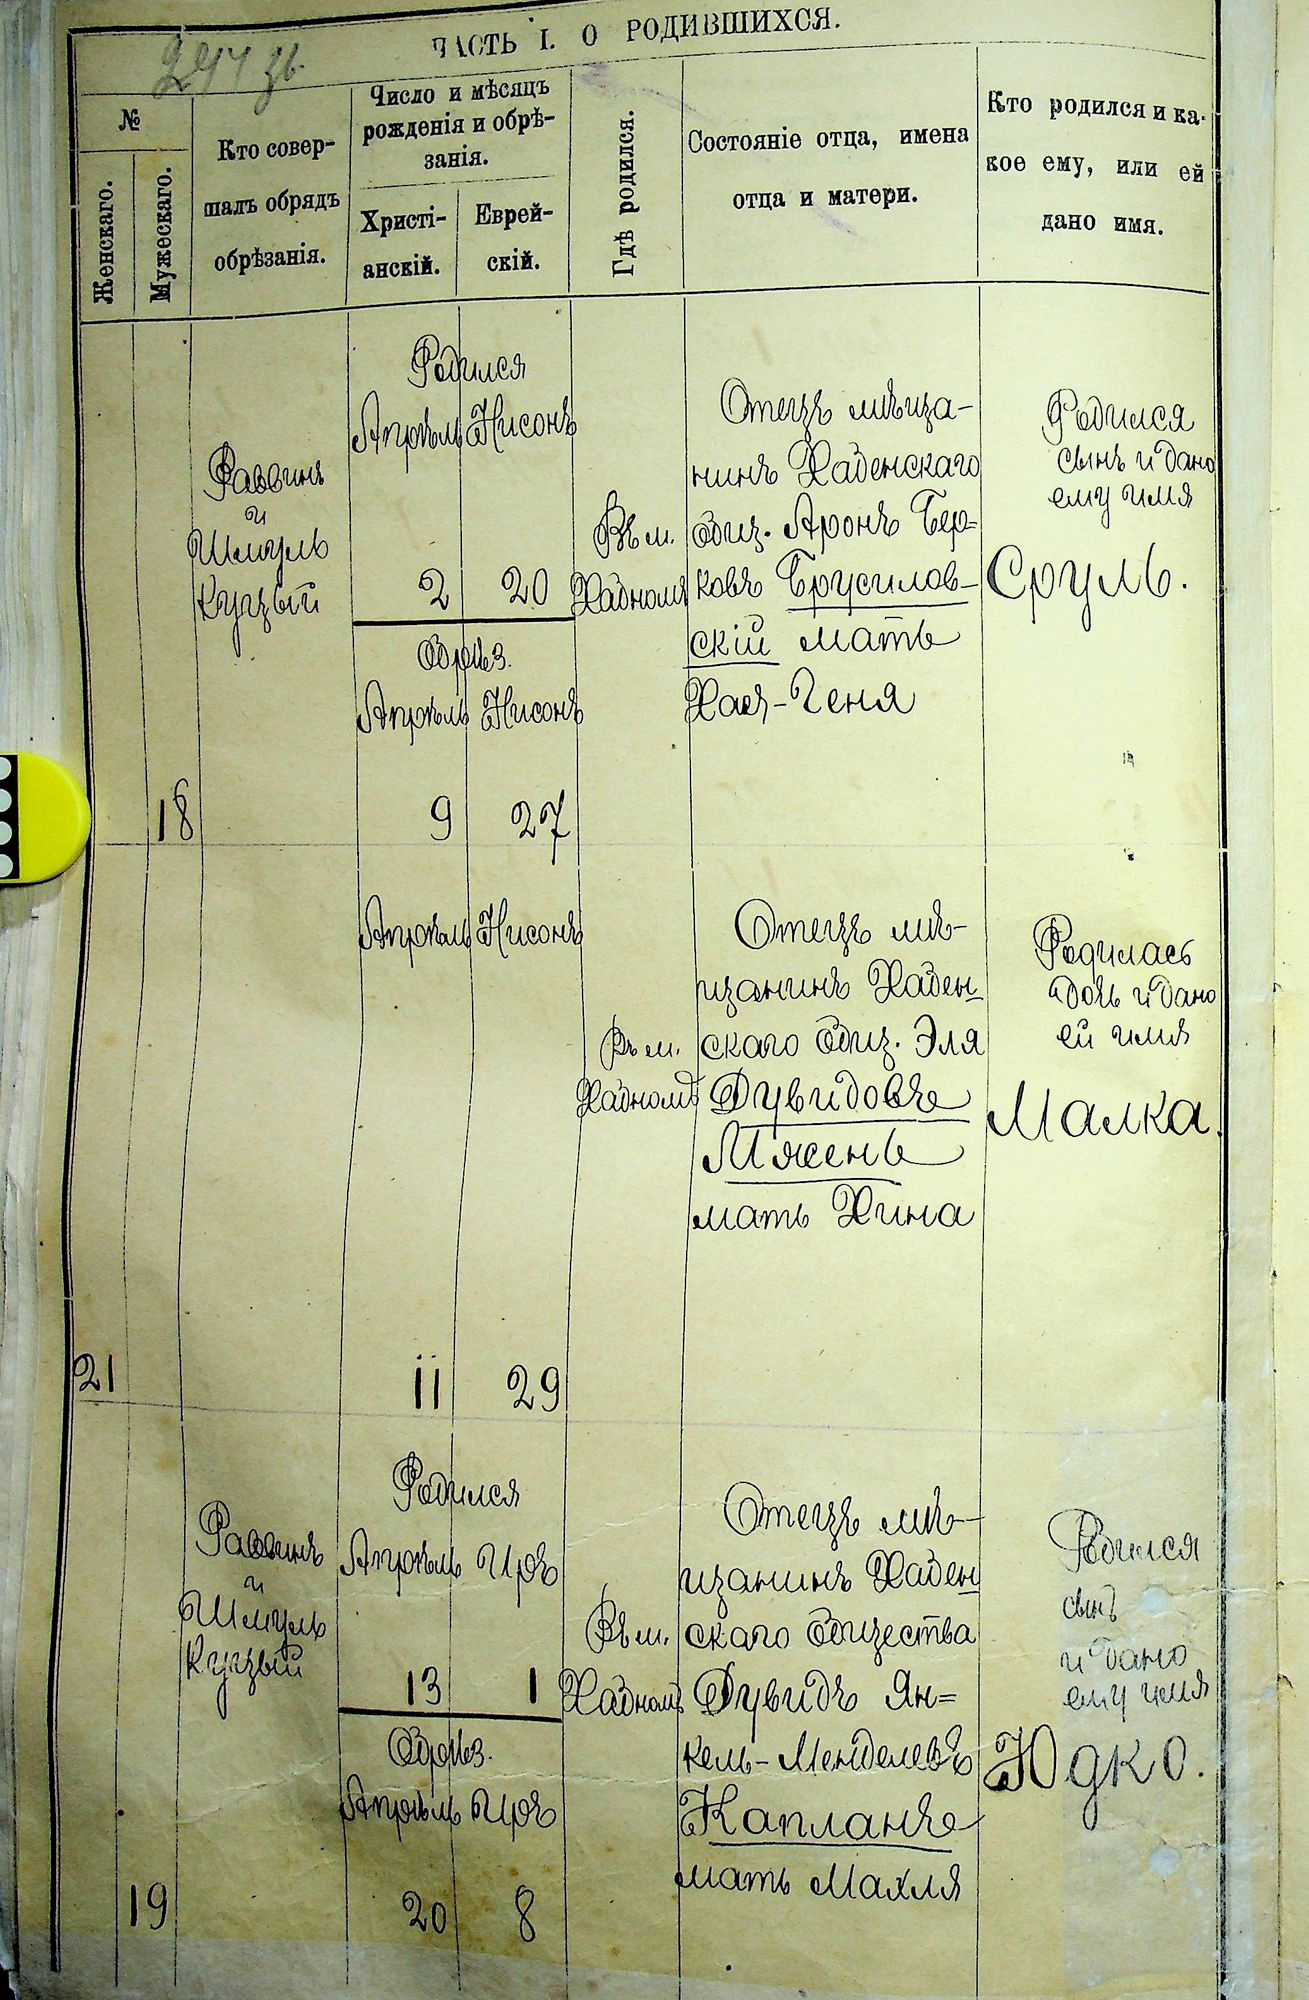 ЧАСТЬ I. О РОДИВШИХСЯ.
№
Женскаго.
Мужескаго.
Кто совер-
шалъ обрядъ
обрѣзанія.
Число и мѣсяцъ
рожденія и обрѣ-
занія.
Христі-
анскій.
Еврей-
скій.
Гдѣ родился.
Состояніе отца, имена
отца и матери.
Кто родился и ка-
кое ему, или ей
дано имя.
18
Раввинъ
и
Шмуль
Куцый
Родился
Апрѣль Нисонъ
2 20
Обрѣз.
Апрѣль Нисонъ
9 27
Въ м.
Хабномъ
Отецъ мѣща-
нинъ Хабенскаго
общ. Аронъ Бер-
ковъ Брусилов-
скій мать
Хая-Геня
Родился
сынъ и дано
ему имя
Сруль.
21
Апрѣль Нисонъ
11 29
Въ м.
Хабномъ
Отецъ мѣ-
щанинъ Хабен-
скаго общ. Эля
Дувидовъ
мать Хина
Родилась
дочь и дано
ей имя
Малка.
19
Раввинъ
и
Шмуль
Куцый
Родился
Апрѣль Иръ
13 1
Обрѣз.
Апрѣль Иръ
20 8
Въ м.
Хабномъ
Отецъ мѣ-
щанинъ Хабен
скаго общества
Дувидъ Ян=
кель-Менделевъ
Капланъ
мать Махля
Родился
сынъ
и дано
ему имя
Юдко.